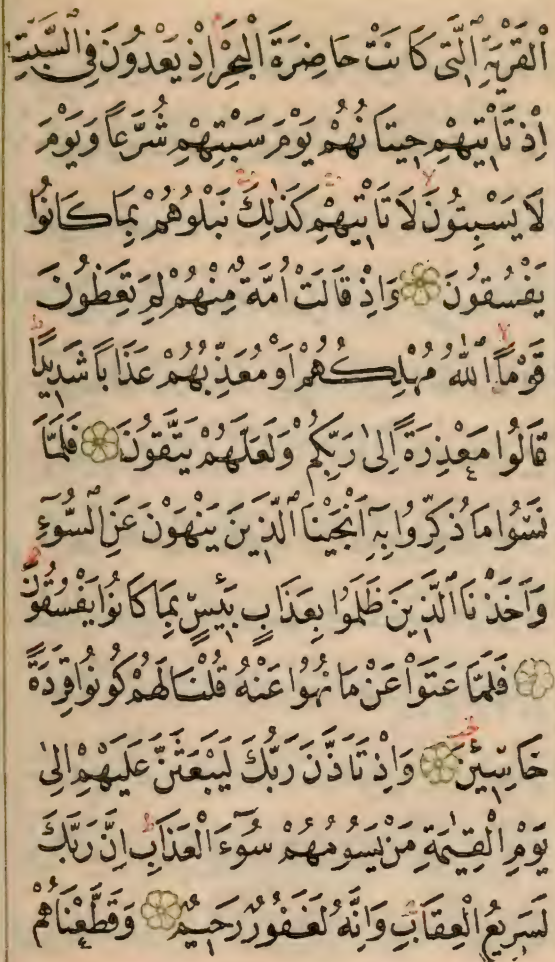 اَلْقَرْيَةِ الَّتِى كَانَتْ حَاضِرَةَ الْبَحْرِ اِذْ يَعْدُونَ فِى السَّبْتِ
اِذْ تَاْتِيهِمْ حِيتَانُهُمْ يَوْمَ سَبْتِهِمْ شُرَّعًا وَيَوْمَ
لَا يَسْبِتُونَ لَا تَاْتِيهِمْ كَذٰلِكَ نَبْلُوهُمْ بِمَا كَانُوا
يَفْسُقُونَ وَاِذْ قَالَتْ اُمَّةٌ مِنْهُمْ لِمَ تَعِظُونَ
قَوْمًا اَللّٰهُ مُهْلِكُهُمْ اَوْ مُعَذِّبُهُمْ عَذَابًا شَدِيدًا
قَالُوا مَعْذِرَةً اِلٰى رَبِّكُمْ وَلَعَلَّهُمْ يَتَّقُونَ فَلَمَّا
نَسُوا مَا ذُكِّرُوا بِهِ اَنْجَيْنَا الَّذِينَ يَنْهَوْنَ عَنِ السُّوءِ
وَاَخَذْنَا الَّذِينَ ظَلَمُوا بِعَذَابٍ بَئِيسٍ بِمَا كَانُوا يَفْسُقُونَ
فَلَمَّا عَتَوْا عَنْ مَا نُهُوا عَنْهُ قُلْنَا لَهُمْ كُونُوا قِرَدَةً
خَاسِئِينَ وَاِذْ تَاَذَّنَ رَبُّكَ لَيَبْعَثَنَّ عَلَيْهِمْ اِلٰى
يَوْمِ الْقِيٰمَةِ مَنْ يَسُومُهُمْ سُوءَ الْعَذَابِ اِنَّ رَبَّكَ
لَسَرِيعُ الْعِقَابِ وَاِنَّهُ لَغَفُورٌ رَحِيمٌ وَقَطَّعْنَاهُمْ